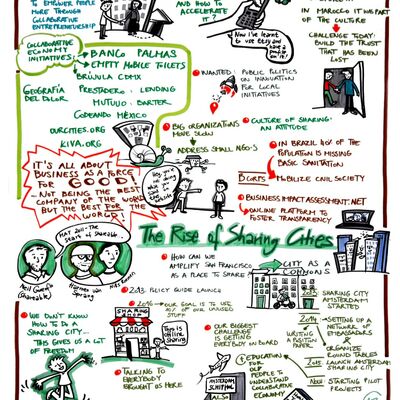 TO EMPOWER PEOPLE
MORE THROUGH
COLLABORATIVE
ENTREPRENEURSHIP
AND HOW TO
ACCELERATE
IT?
Now I've learnt
to use Etsy and
IN MAROCCO IT WAS PART
OF THE CULTURE
CHALLENGE TODAY:
BUILD THE TRUST
THAT HAS BEEN
LOST
COLLABORATIVE
ECONOMY
INITIATIVES:
BANCO PALMAS
EMPTY MOBILE TOILETS
BRÚJULA CDMX
GEOGRAFÍA
DEL DOLOR
PRESTADERO: LENDING
MUTUUO: BARTER
CODEANDO MÉXICO
OURCITIES.ORG
KIVA.ORG
WANTED: PUBLIC POLITICS
ON INNOVATION
FOR LOCAL
INITIATIVES
BIG ORGANIZATIONS
MOVE SLOWLY
ADDRESS SMALL NGO'S
CULTURE OF SHARING:
AN ATTITUDE
IN BRAZIL 40% OF THE
POPULATION IS MISSING
BASIC SANITATION
BCORPS MOBILIZE CIVIL SOCIETY
BUSINESS IMPACT ASSESSMENT.NET
ONLINE PLATFORM TO
FOSTER TRANSPARENCY
IT'S ALL ABOUT
BUSINESS AS A FORCE
FOR GOOD!
NOT BEING THE BEST
COMPANY OF THE WORLD
BUT THE BEST FOR THE
WORLD!
The Rise of Sharing Cities
MAY 2011: THE
START OF SHAREABLE
Neil Gorenflo
(Shareable)
Harmen van
Sprang
HOW CAN WE
AMPLIFY SAN FRANCISCO
AS A PLACE TO SHARE?
CITY AS A
COMMONS
2013 POLICY GUIDE LAUNCH
OUR GOAL IS TO USE
OF OUR UNUSED
STUFF
SHARING
SHOP
This is
online
sharing
2013 SHARING CITY
AMSTERDAM
STARTED
2014 SETTING UP A
NETWORK OF
AMBASSADORS
&
ORGANIZE
ROUND TABLES
WRITING A
POSITION
PAPER
2015 LAUNCH AMSTERDAM
SHARING CITY
Now STARTING PILOT
PROJECTS
WE DON'T KNOW
HOW TO DO A
SHARING CITY...
THIS GIVES US A LOT
OF FREEDOM
OUR BIGGEST
CHALLENGE
IS GETTING
EVERYBODY ON BOARD
TALKING TO
EVERYBODY
BROUGHT US HERE
EDUCATION FOR
OLD PEOPLE TO
UNDERSTAND
COLLABORATIVE
ECONOMY
AMSTERDAM
ALSO